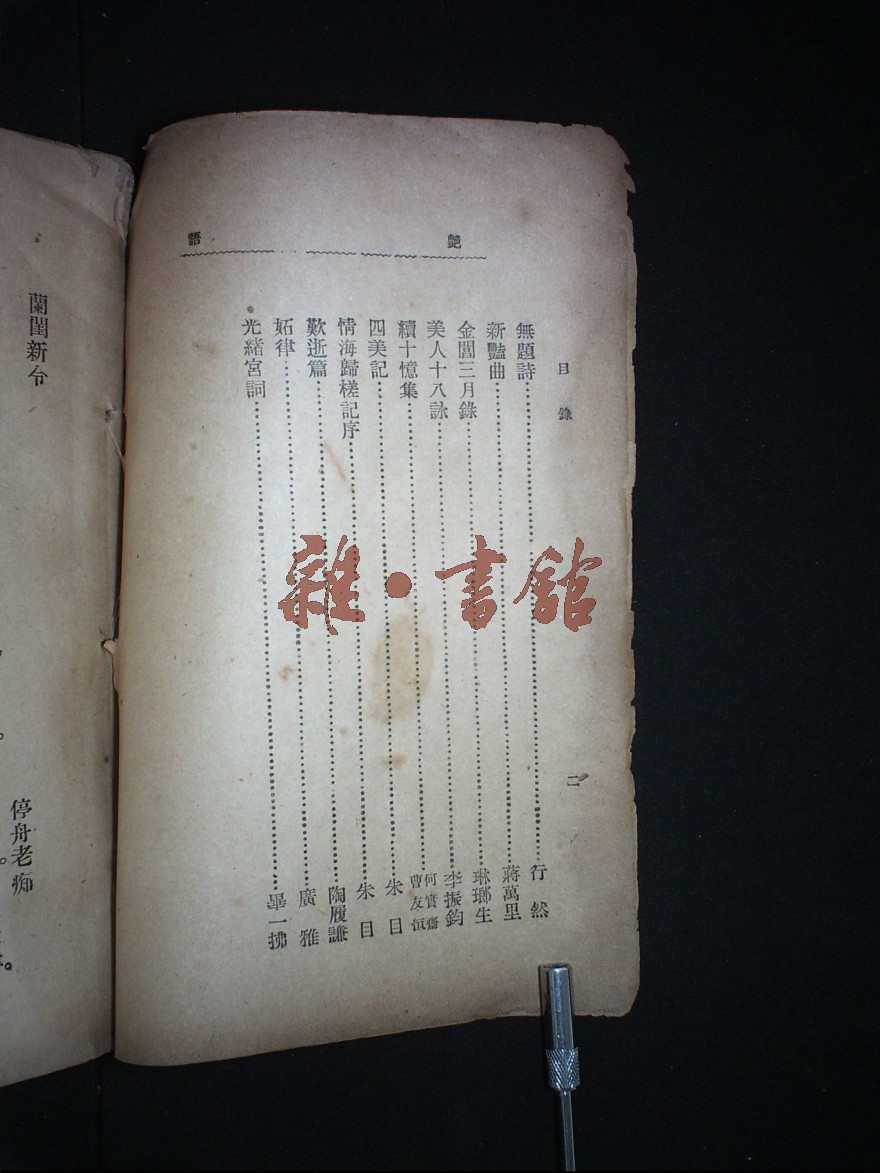 艷語
目錄
二
無題詩……行然
新豔曲……蔣萬里
金閶三月錄……琳瑯生
美人十八詠……李振鈞
續十憶集……何實齋 曹友恆
四美記……朱目
情海歸槎記序……朱目
歎逝篇……陶履謙
妬律……廣雅
光緒宮詞……畢一拂
蘭閨新令
停舟老痴
雜·書館